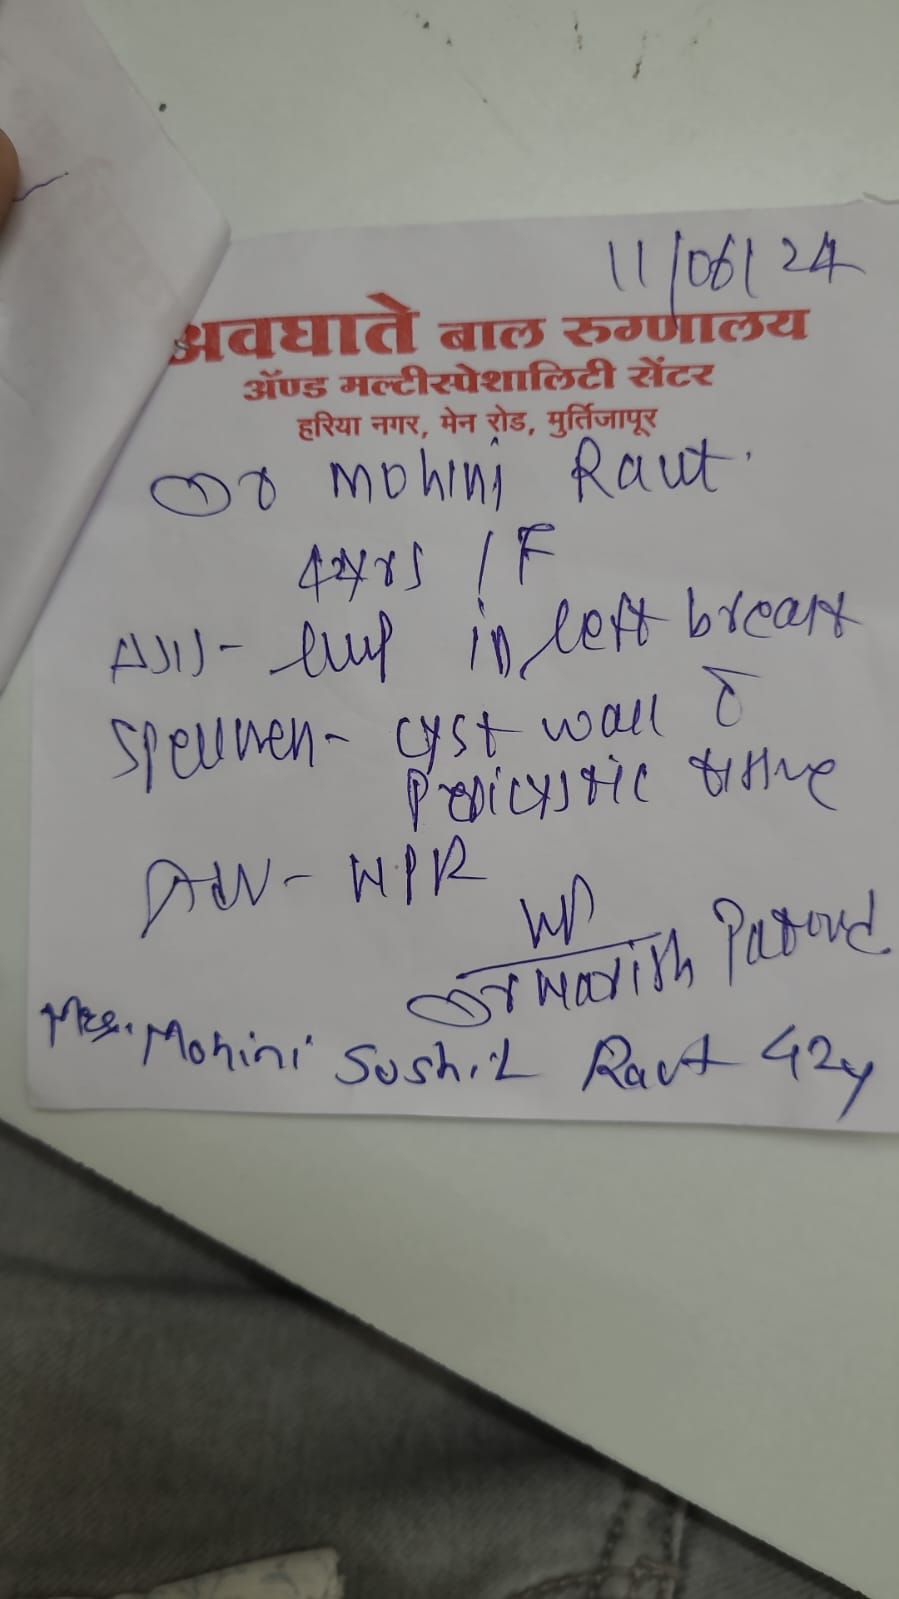 11/06/24
अवघाते बाल रुग्णालय
ॲण्ड मल्टीस्पेशालिटी सेंटर
हरिया नगर, मेन रोड, मुर्तिजापूर
Mohini Raut
/ F
in left breast
specimen - cyst wall c̄
pericystic tissue
Adv - HPR
Mrs. Mohini Sushil Raut 42y